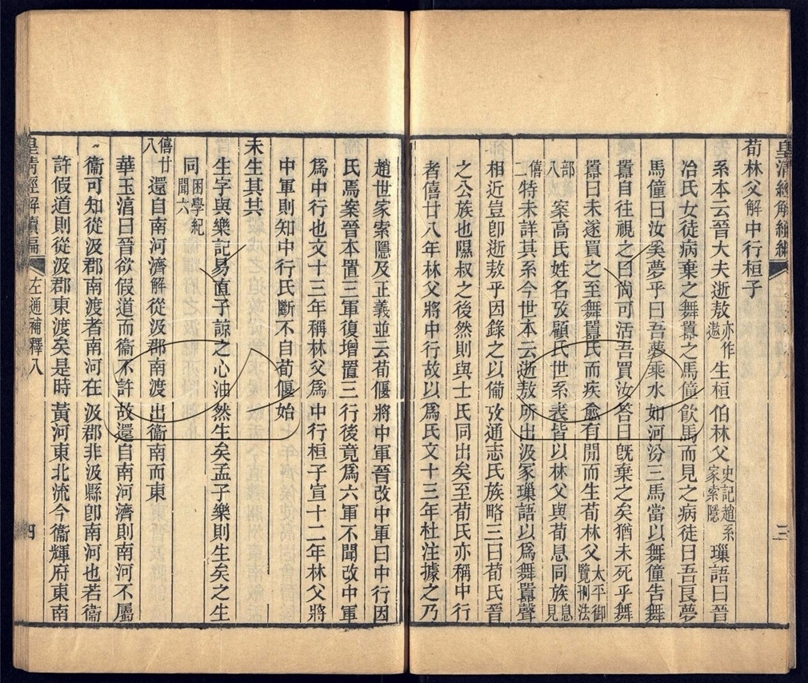 皇清經解續編
三
荀林父解中行桓子
系本云晉大夫逝敖亦作遨生桓伯林父史記趙系家索隱璅語曰晉
冶氏女徒病棄之舞嚚之馬僮飲馬而見之病徒曰吾良夢
馬僮曰汝奚夢乎曰吾夢乘水如河汾三馬當以舞僮告舞
嚚自往視之曰尚可活吾買汝答曰旣棄之矣猶未死乎舞
嚚曰未遂買之至舞嚚氏而疾愈有閒而生荀林父太平御覽
案高氏姓名攷顧氏世系表皆以林父與荀息同族息見
僖二特未詳其系今世本云逝敖所出汲冢璅語以爲舞嚚聲
相近豈卽逝敖乎因錄之以備攷通志氏族略三曰荀氏晉
之公族也隰叔之後然則與士氏同出矣至荀氏亦稱中行
者僖廿八年林父將中行故以爲氏文十三年杜注據之乃
趙世家索隱及正義並云荀偃將中軍晉改中軍曰中行因
氏焉案晉本置三軍復增置三行後竟爲六軍不聞改中軍
爲中行也文十三年稱林父爲中行桓子宣十二年林父將
中軍則知中行氏斷不自荀偃始
未生其其
生字與樂記易直子諒之心油然生矣孟子樂則生矣之生
同困學紀聞六
僖廿八還自南河濟解從汲郡南渡出衞南而東
華玉淯曰晉欲假道而衞不許故還自南河濟則南河不屬
衞可知從汲郡南渡者南河在汲郡非汲縣卽南河也若衞
許假道則從汲郡東渡矣是時黃河東北流今衞輝府東南
皇清經解續編
左通補釋八
四